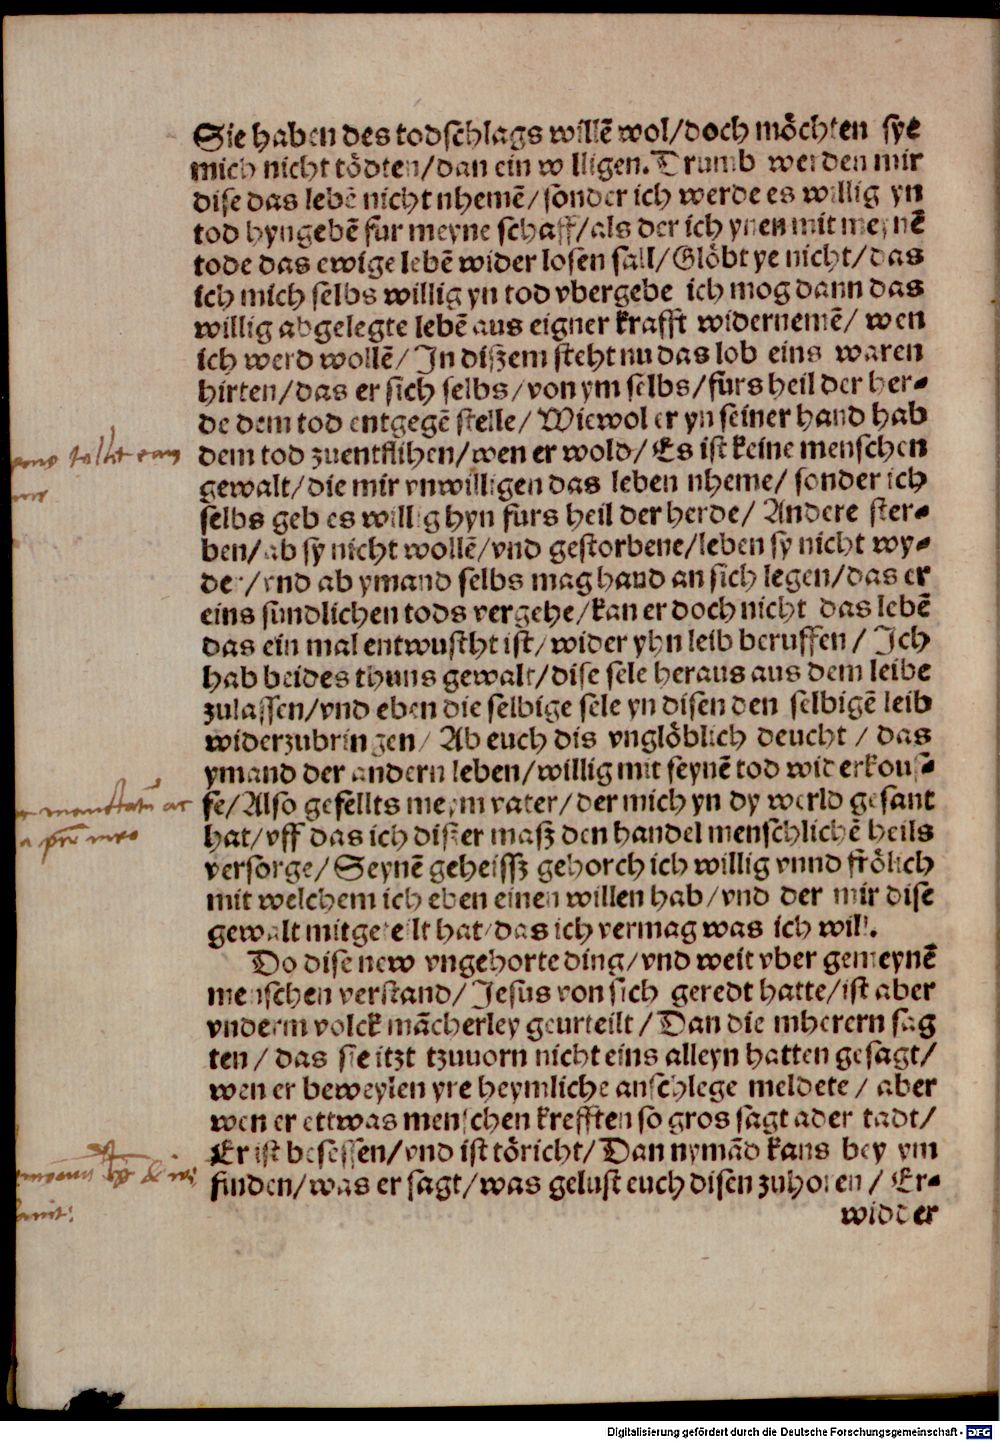 Sie haben des todschlags willē wol/doch möchten sye
mich nicht tödten/dan ein willigen. Drumb werden mir
dise das lebē nicht nhemē/sonder ich werde es willig yn
tod hyngebē fur meyne schaff/als der ich ynen mit meynē
tode das ewige lebē wider losen sall/Glöbt ye nicht/das
ich mich selbs willig yn tod vbergebe ich mog dann das
willig abgelegte lebē aus eigner krafft widernemē/ wen
ich werd wollē/ In dißem steht nu das lob eins waren
hirten/das er sich selbs/von ym selbs/furs heil der her-
de dem tod entgegē stelle/ Wiewol er yn seiner hand hab
dem tod zuentflihen/wen er wold/ Es ist keine menschen
gewalt/die mir vnwilligen das leben nheme/ sonder ich
selbs geb es willig hyn furs heil der herde/ Andere ster-
ben/ab sy nicht wollē/vnd gestorbene/leben sy nicht wy-
der/vnd ab ymand selbs mag hand an sich legen/das er
eins sundlichen tods vergehe/kan er doch nicht das lebē
das ein mal entwustht ist/wider yhn leib beruffen/ Ich
hab beides thuns gewalt/dise sele heraus aus dem leibe
zulassen/vnd eben die selbige sele yn disen den selbigē leib
widerzubringen/ Ab euch dis vnglöblich deucht/ das
ymand der andern leben/willig mit seynē tod widerkouf-
fe/Also gefellts meym vater/der mich yn dy werld gesant
hat/vff das ich dißer maß den handel menschlichē heils
versorge/ Seynē geheissz gehorch ich willig vnnd frölich
mit welchem ich eben einen willen hab/vnd der mir dise
gewalt mitgeteilt hat/das ich vermag was ich will.
Do dise new vngehorte ding/vnd weit vber gemeynē
menschen verstand/ Jesus von sich geredt hatte/ist aber
vnderm volck mācherley geurteilt/ Dan die mherern sag
ten/ das sie itzt tzuuorn nicht eins alleyn hatten gesagt/
wen er beweylen yre heymliche anschlege meldete/ aber
wen er ettwas menschen krefften so gros sagt ader tadt/
Er ist besessen/vnd ist töricht/ Dan nymād kans bey ym
finden/was er sagt/was gelust euch disen zuhoren/ Er-
widder
tollit eam
Digitalisierung gefördert durch die Deutsche Forschungsgemeinschaft - DFG